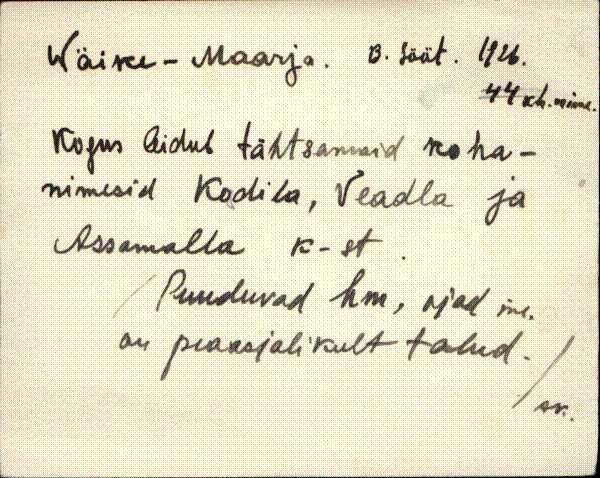 Wäike-Maarja. B. Sööt. 1926.
44 kh. nime.
Kogus leidub tähtsamaid koha-
nimesid Kodila, Veadla ja
Assamalla k-st.
/ Puuduvad hm, ojad jne.
on peaasjalikult talud. /